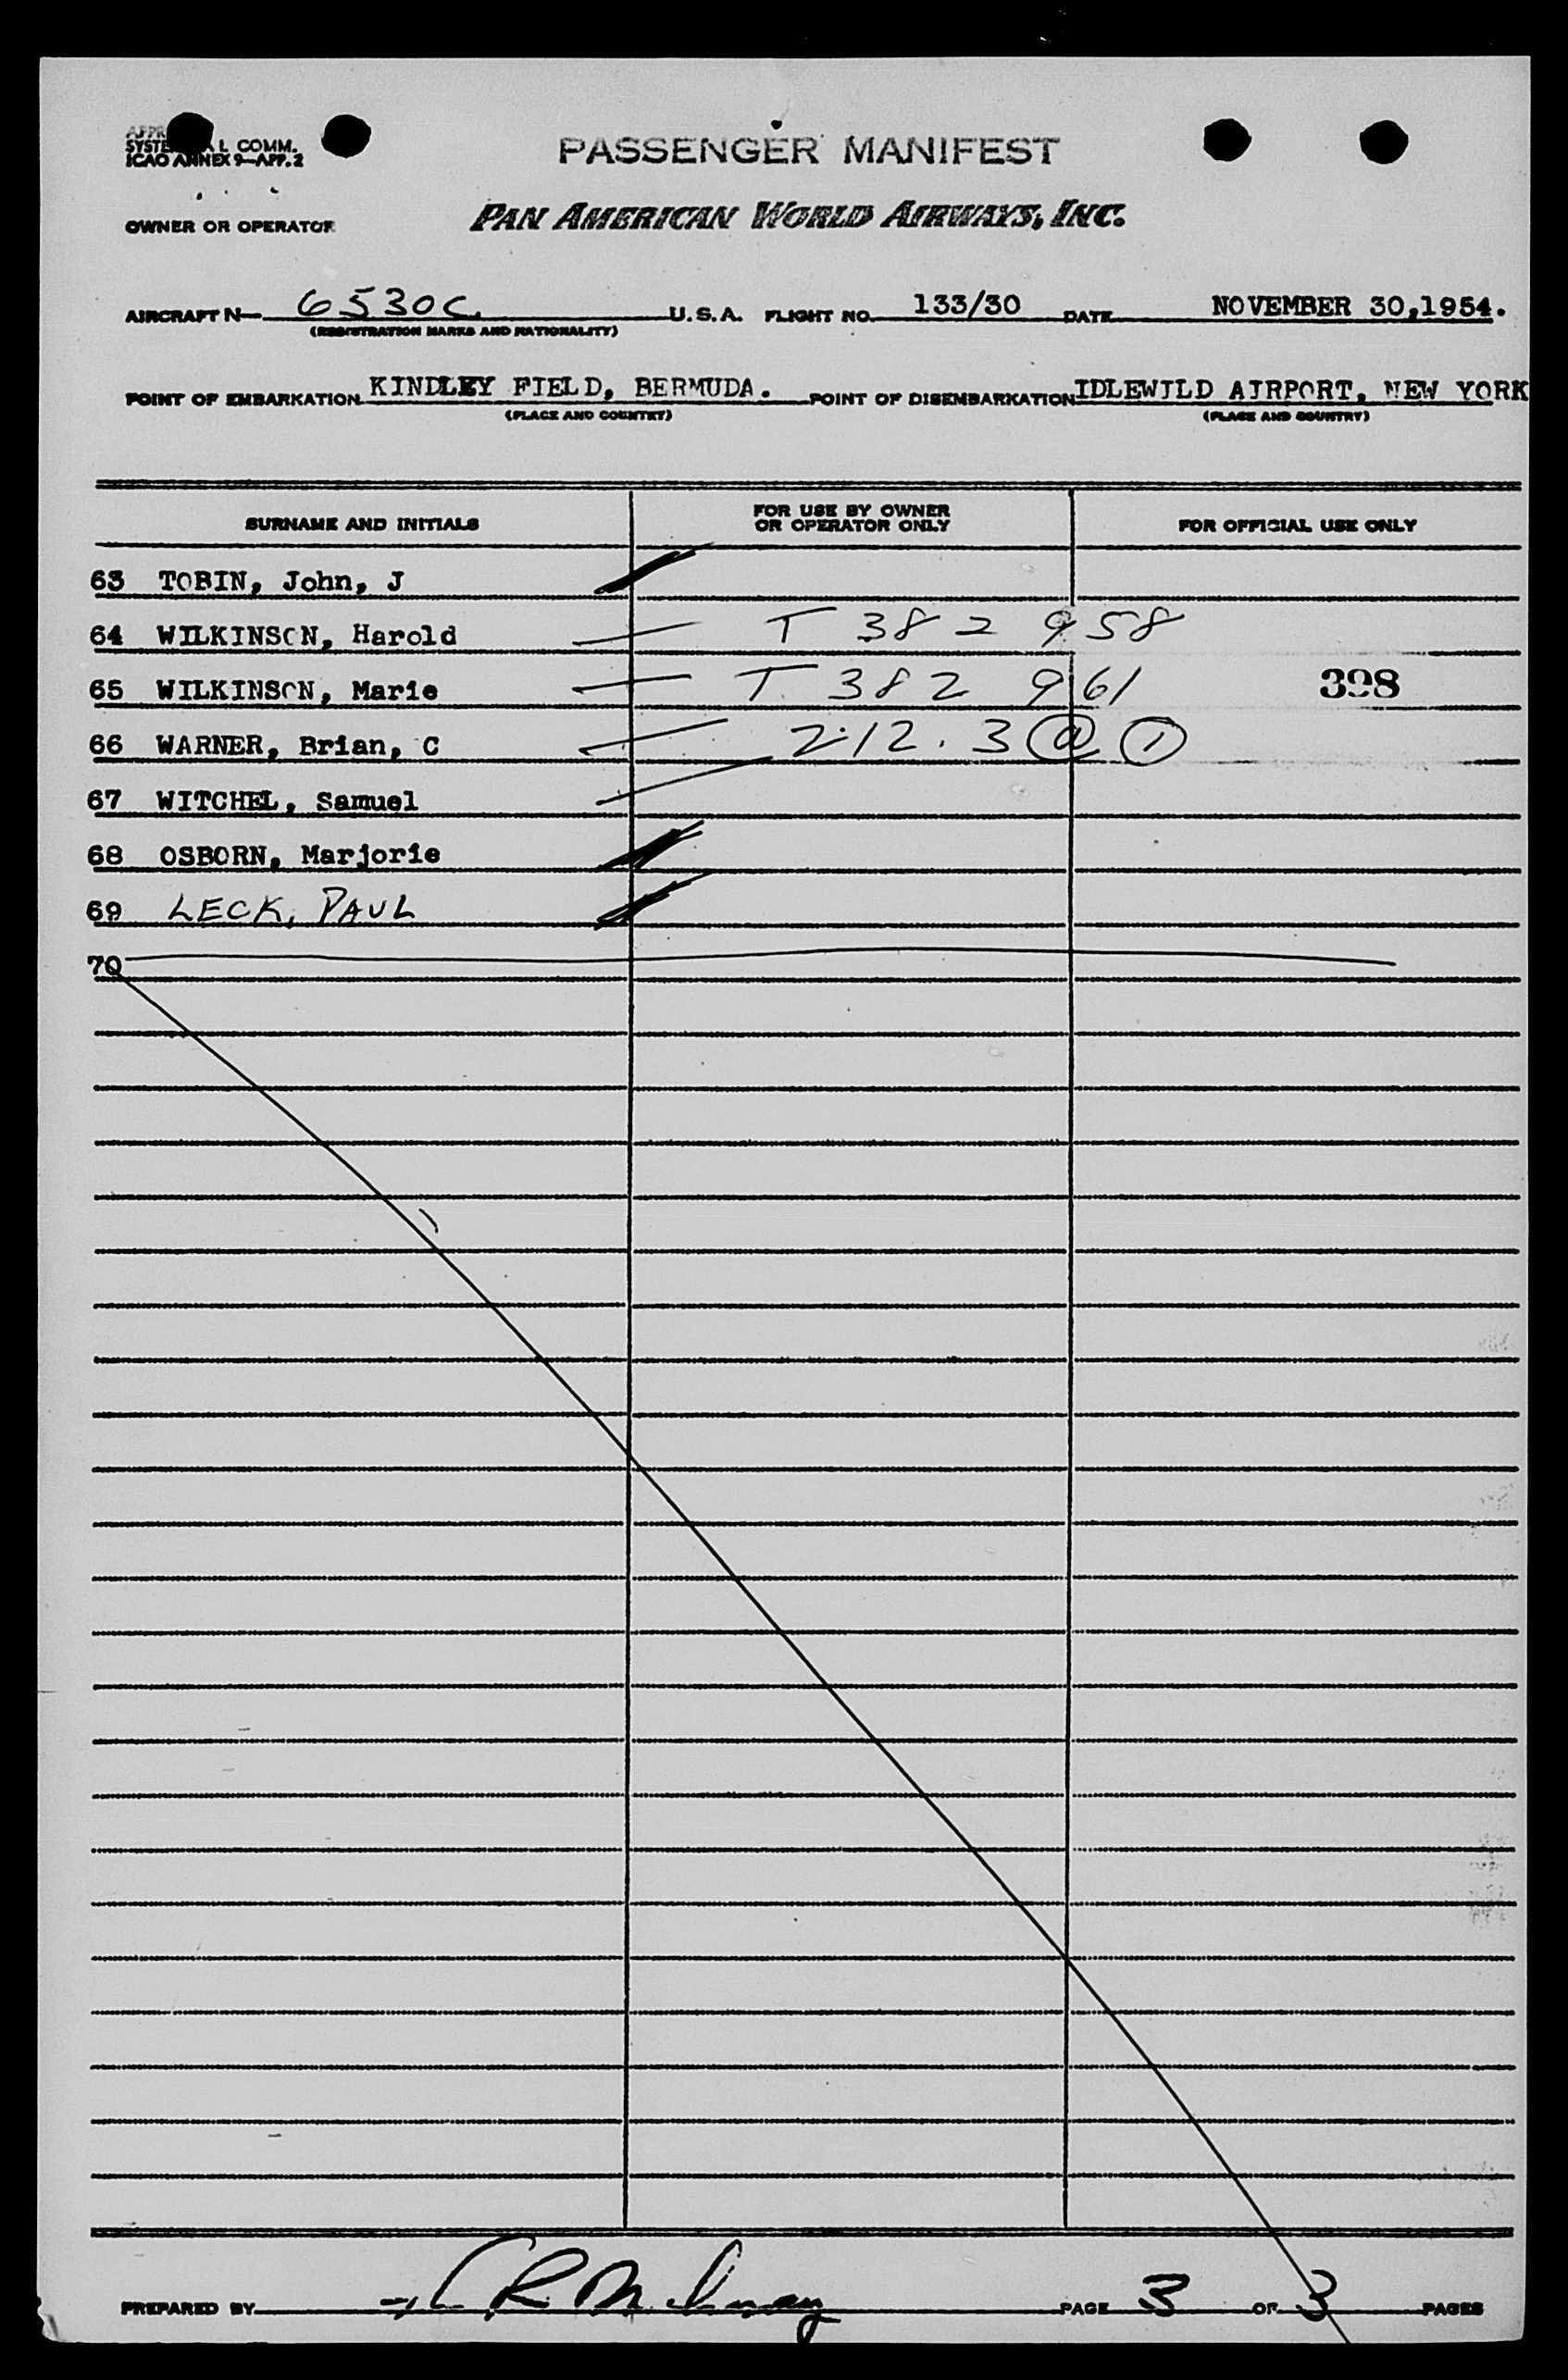 PASSENGER MANIFEST
L COMM.
ICAO ANNEX 9—APP. 2
OWNER OR OPERATOR
PAN AMERICAN WORLD AIRWAYS, INC.
AIRCRAFT N— 6530C U.S.A. FLIGHT NO. 133/30 DATE NOVEMBER 30,1954.
(REGISTRATION MARKS AND NATIONALITY)
POINT OF EMBARKATION KINDLEY FIELD, BERMUDA. POINT OF DISEMBARKATION IDLEWILD AIRPORT, NEW YORK
(PLACE AND COUNTRY) (PLACE AND COUNTRY)
SURNAME AND INITIALS
FOR USE BY OWNER
OR OPERATOR ONLY
FOR OFFICIAL USE ONLY
63 TOBIN, John, J
64 WILKINSON, Harold T 382 958
65 WILKINSON, Marie T 382 961 398
66 WARNER, Brian, C 212.3 @ 1
67 WITCHEL, Samuel
68 OSBORN, Marjorie
69 LECK, PAUL
70
PREPARED BY PAGE 3 OF 3 PAGES